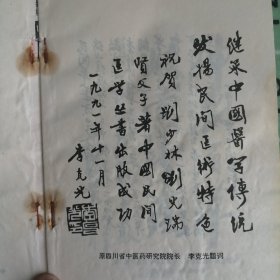 继承中国医学传统
发扬民间医术特色
祝贺刘少林刘光瑞
贤父子著中国民间
医学丛书出版成功
一九九一年十一月
李克光
原四川省中医药研究院院长 李克光题词